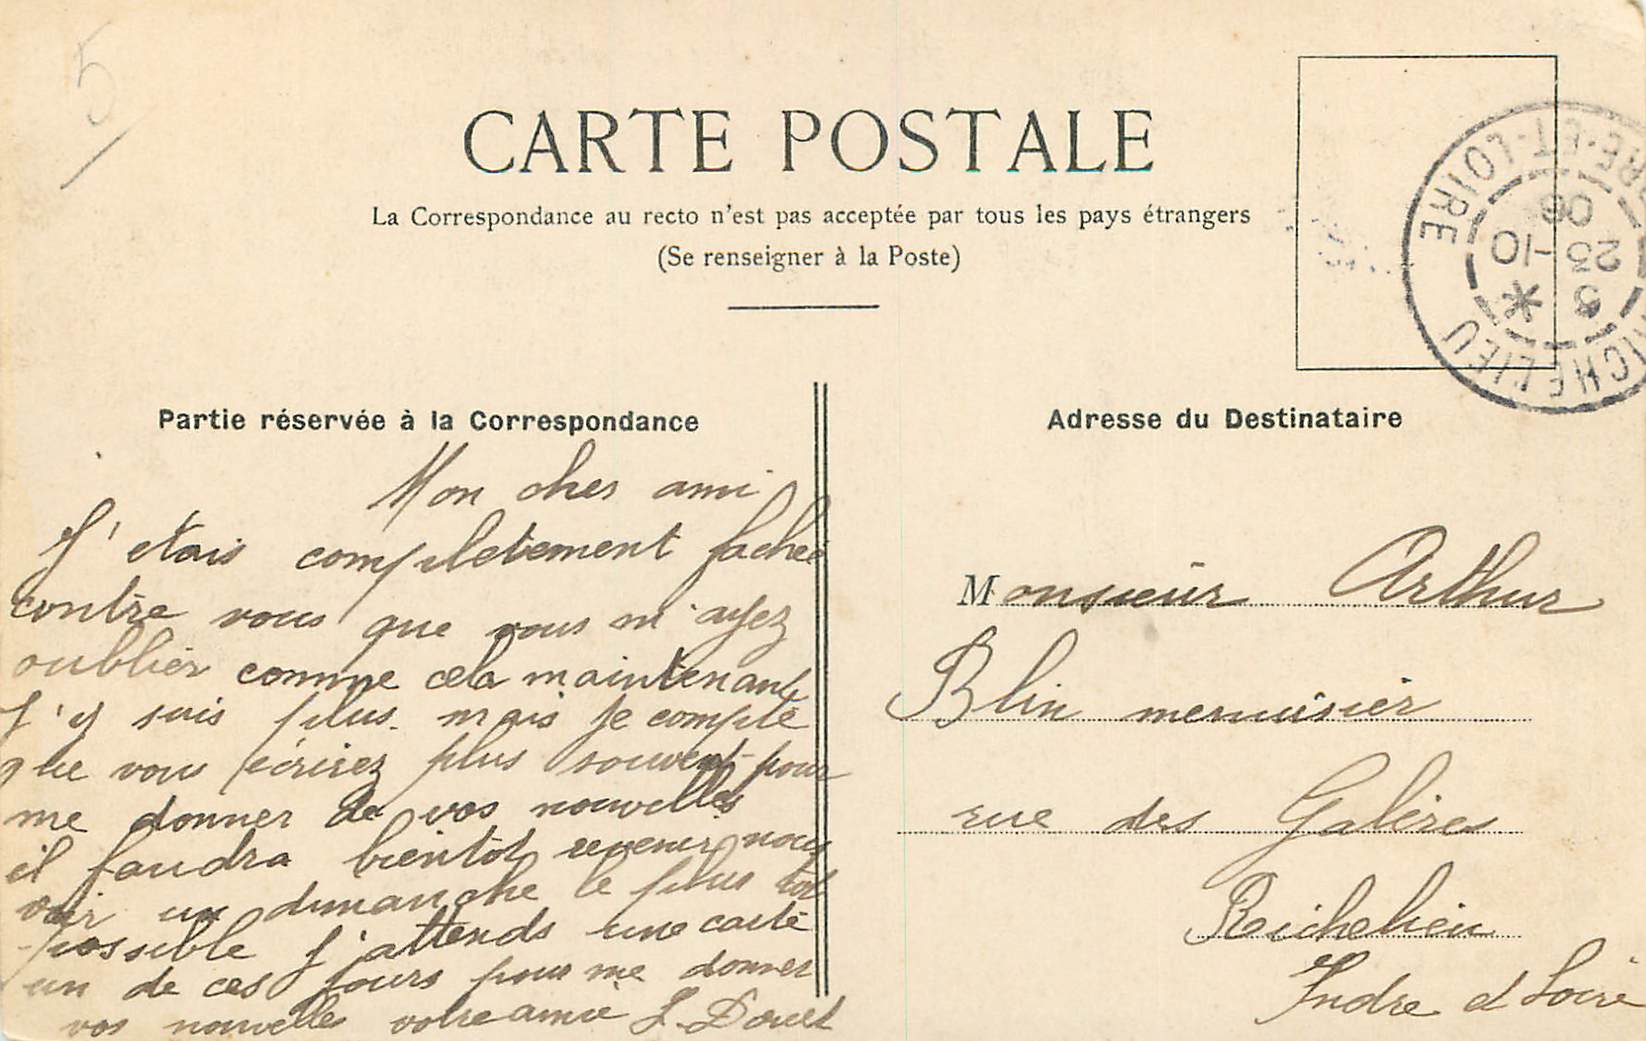 5
CARTE POSTALE
La Correspondance au recto n'est pas acceptée par tous les pays étrangers
(Se renseigner à la Poste)
RICHELIEU
INDRE-ET-LOIRE
3 *
23 -10
06
Partie réservée à la Correspondance
Mon cher ami
J'etais completement fachée
contre vous que vous m'ayez
oublier comme cela maintenant
J'y suis plus. mais je compte
que vous écrirez plus souvent pour
me donner de vos nouvelles
il faudra bientôt revenir nous
voir un dimanche le plus tot
possible j'attends une carte
un de ces jours pour me donner
vos nouvelles votre amie
Adresse du Destinataire
Monsieur Arthur
Blin menuisier
rue des Galères
Richelieu
Indre et Loire